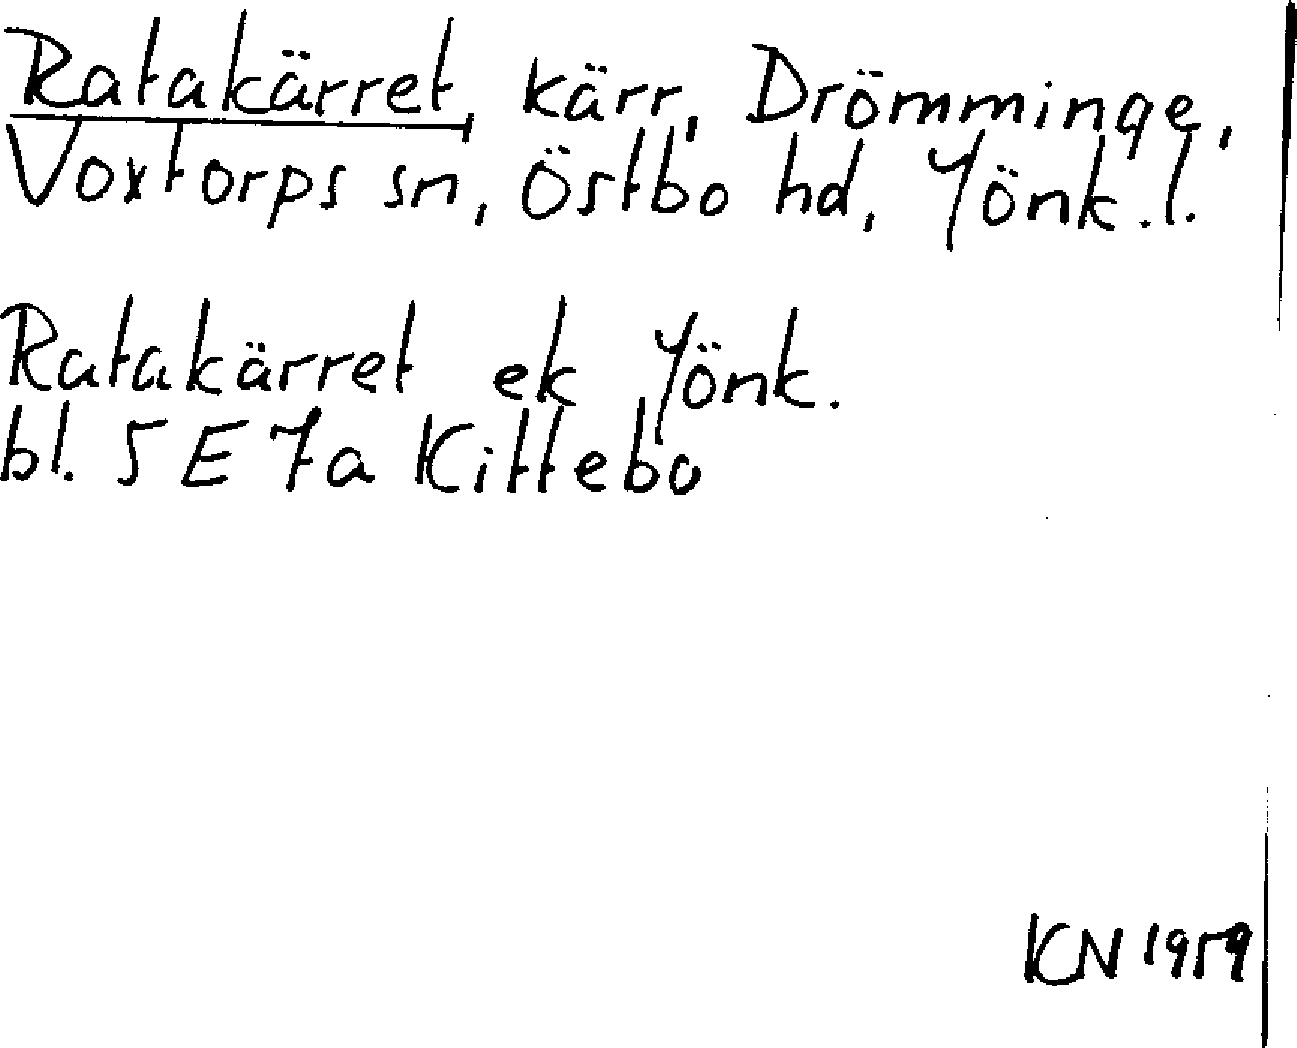 Ratakärret, kärr, Drömminge,
Voxtorps sn, Östbo hd, Jönk.l.
Ratakärret ek Jönk.
bl. 5 E 7a Kittebo
KN 1959